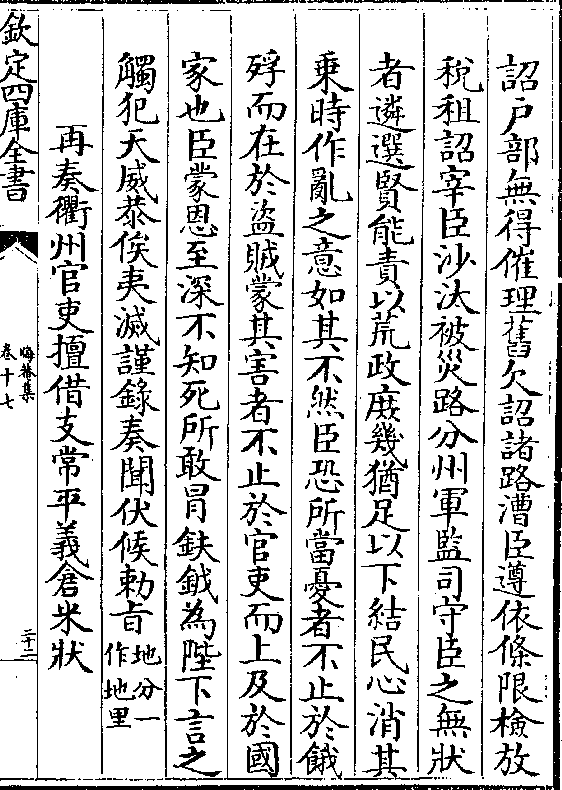 詔户部無得催理舊欠詔諸路漕臣遵依條限檢放
稅租詔宰臣沙汰被災路分州軍監司守臣之無狀
者遴選賢能責以荒政庻幾猶足以下結民心消其
乗時作亂之意如其不然臣恐所當憂者不止於餓
殍而在於盜賊蒙其害者不止於官吏而上及於國
家也臣蒙恩至深不知死所敢冒鈇鉞為陛下言之
觸犯天威恭俟夷滅謹錄奏聞伏候勅旨地分一作地里
再奏衢州官吏擅借支常平義倉米狀
欽定四庫全書
晦菴集
卷十七
二十二